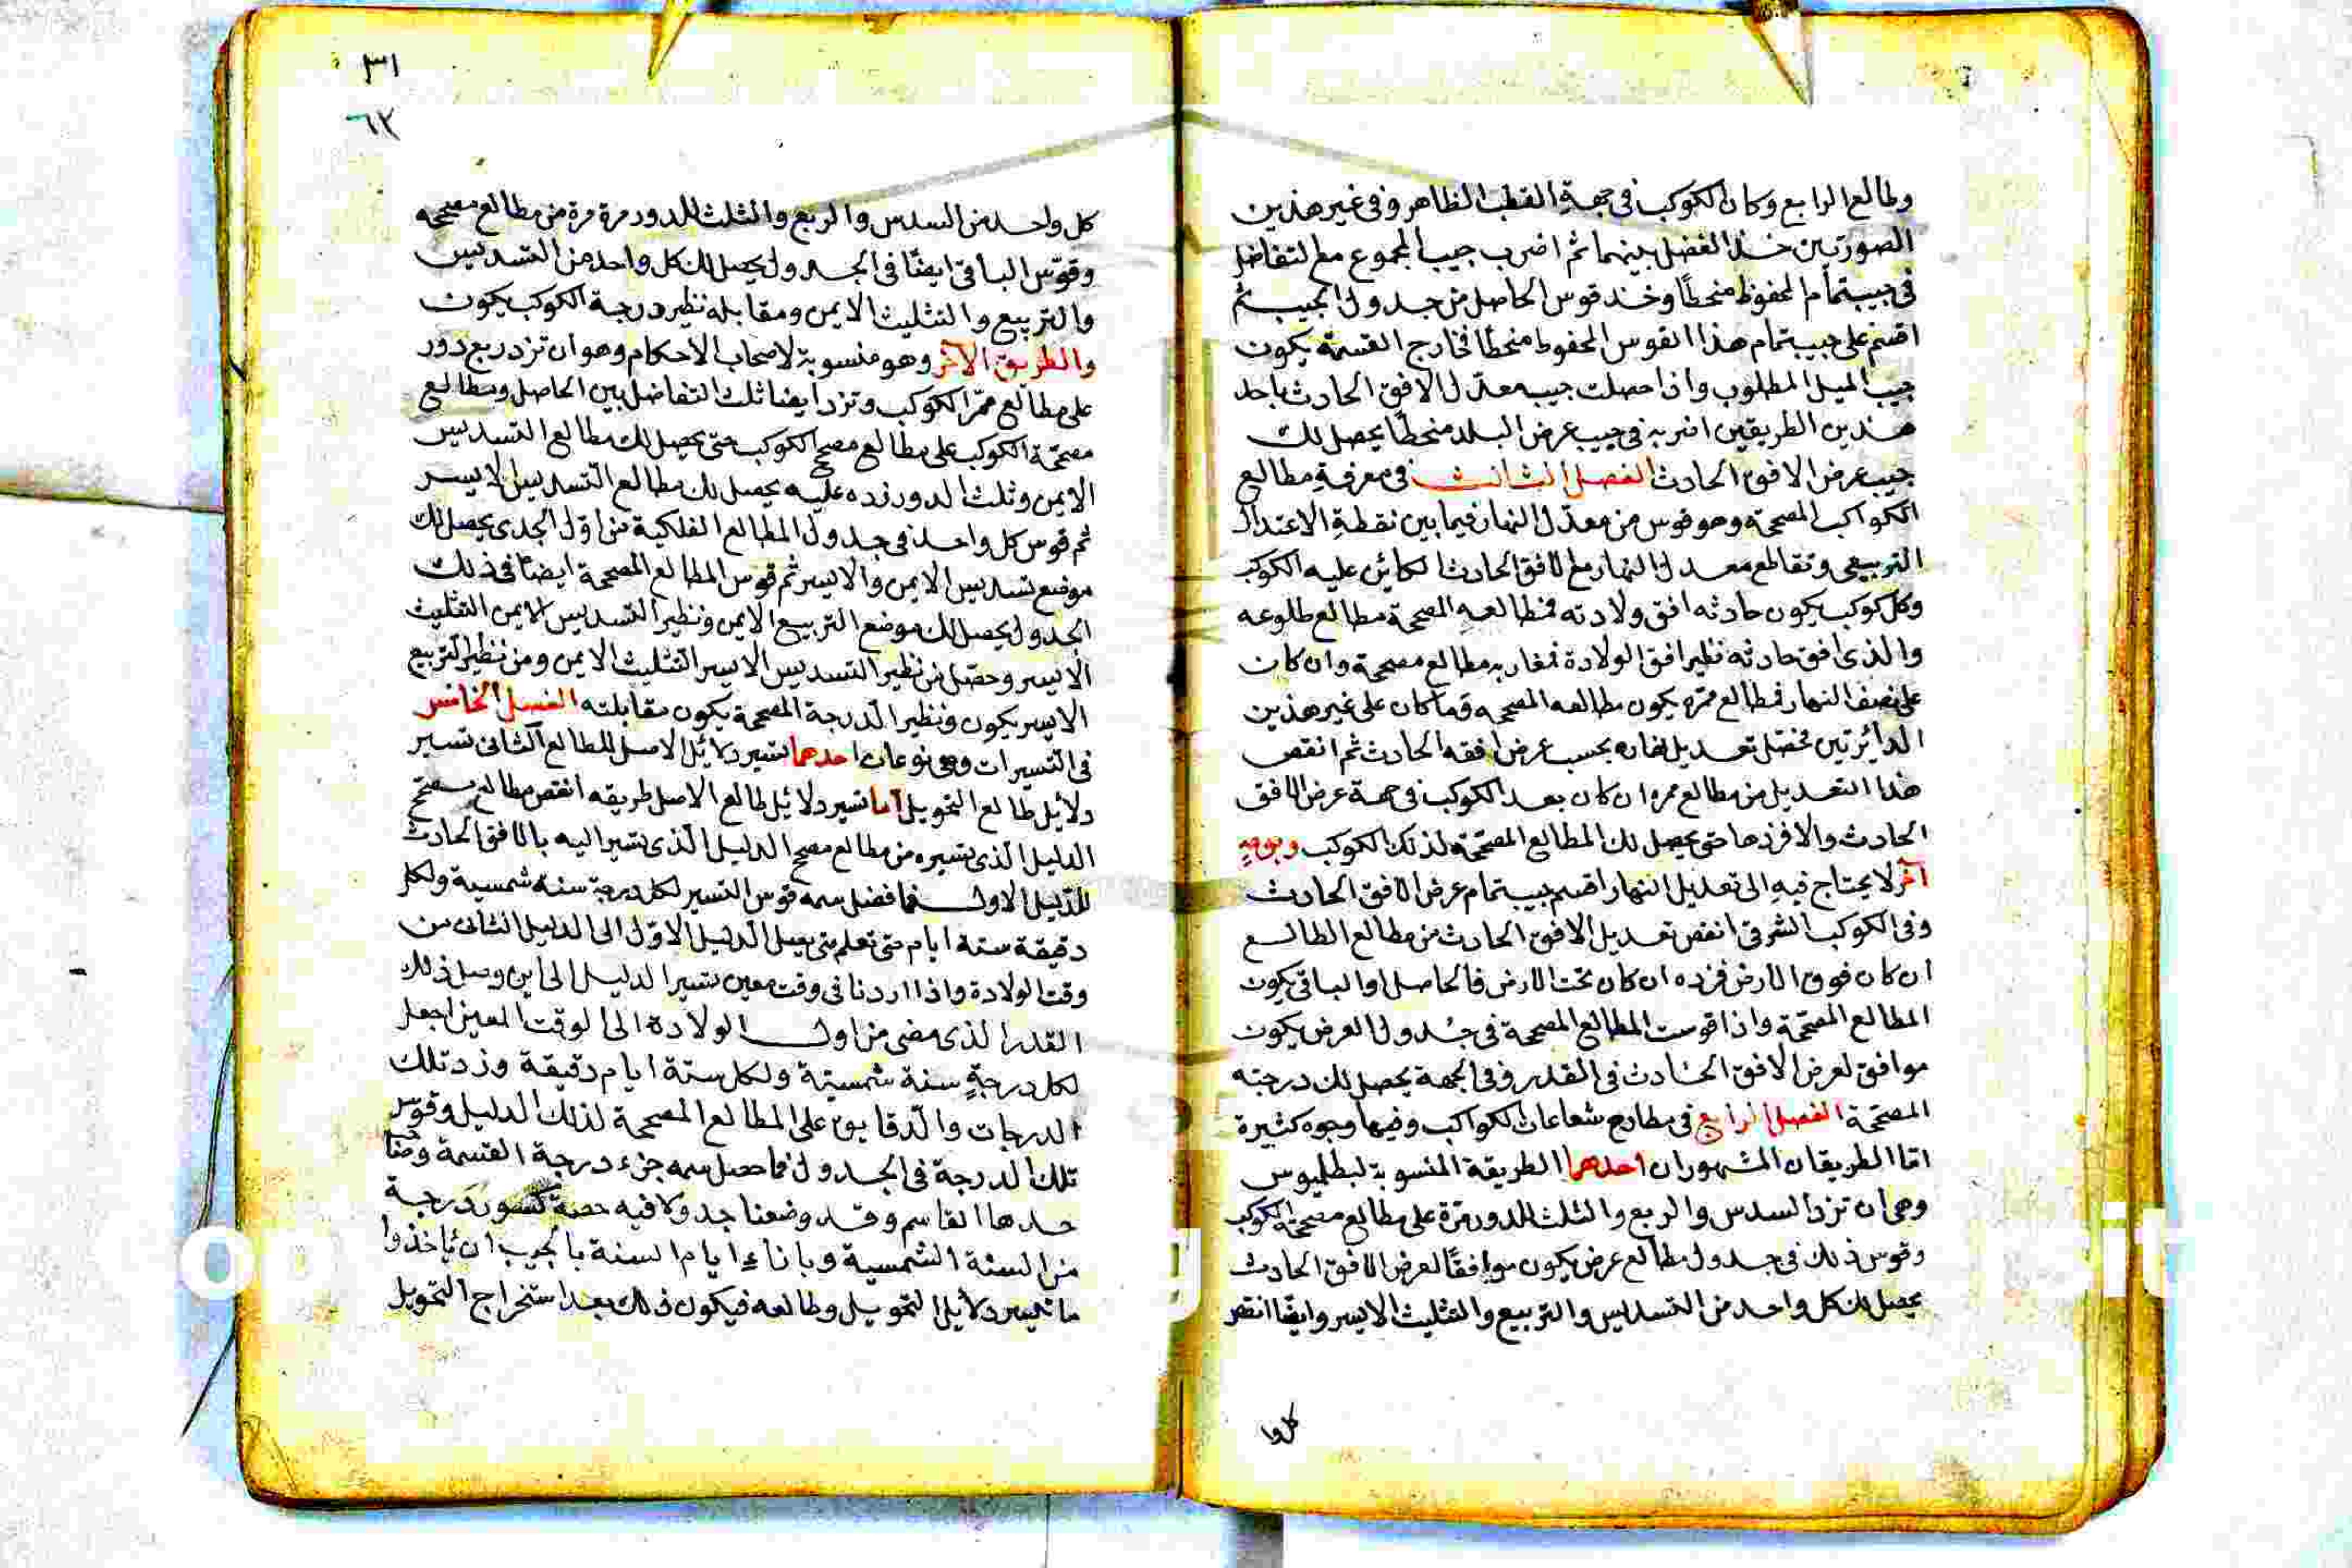 وطالع الرابع وكان الكوكب فى جهة القطب الظاهر وفى غير هذين
الصورتين خذ الفضل بينهما ثم اضرب جيب المجموع مع التفاضل
فى جيب تمام المحفوظ منحطًا وخذ قوس الحاصل من جدول الجيب ثم
اقسم على جيب تمام هذا القوس المحفوظ منحطا فخارج القسمة يكون
جيب الميل المطلوب واذا حصلت جيب معدل الافق الحادث باحد
هذين الطريقين اضربه فى جيب عرض البلد منحطا يحصل لك
جيب عرض الافق الحادث الفصل الثالث فى معرفة مطالع
الكواكب المصححة وهو قوس من معدل النهار فيما بين نقطة الاعتدال
الربيعى وتقاطع معدل النهار مع الافق الحادث الكائن عليه الكوكب
وكل كوكب يكون حادثه افق ولادته فمطالعه المصححة مطالع طلوعه
والذى افق حادثه نظير افق الولادة فمغاربه مطالع مصححة وان كان
على نصف النهار فمطالع ممره يكون مطالعه المصححه وما كان على غير هذين
الدائرتين فحصل تعديل نهاره بحسب عرض افقه الحادث ثم انقص
هذا التعديل من مطالع ممره ان كان بعد الكوكب فى جهة عرض الافق
الحادث والا فزدها حتى يحصل لك المطالع المصححة لذلك الكوكب وبوجه
آخر لا يحتاج فيه الى تعديل النهار اقسم جيب تمام عرض الافق الحادث
وفى الكوكب الشرقى انقص تعديل الافق الحادث من مطالع الطالع
ان كان فوق الارض فزده ان كان تحت الارض فالحاصل او الباقى يكون
المطالع المصححة واذا قوست المطالع المصححة فى جدول العرض يكون
موافق لعرض الافق الحادث فى القدر وفى الجهة يحصل لك درجته
المصححة الفصل الرابع فى مطارح شعاعات الكواكب وفيها وجوه كثيرة
اما الطريقان المشهوران احدهما الطريقة المنسوبة لبطلميوس
وهى ان تزد السدس والربع والثلث للدور مرة على مطالع مصححة الكوكب
وقوس ذلك فى جدول مطالع عرض يكون موافقًا لعرض الافق الحادث
يحصل لك كل واحد من التسديس والتربيع والتثليث الايسر وايضًا انقص
كل وا
٣١
٦٢
كل واحد من السدس والربع والثلث للدور مرة مرة من مطالع مصححه
وقوّس الباقى ايضًا فى الجدول يحصل لك كل واحد من التسديس
والتربيع والتثليث الايمن ومقابله نظير درجة الكوكب يكون
والطريق الآخر وهو منسوبة لاصحاب الاحكام وهو ان تزد ربع دور
على مطالع ممرّ الكوكب وتزد ايضا ثلث التفاضل بين الحاصل ومطالع
مصححة الكوكب على مطالع مصحح الكوكب حتى يحصل لك مطالع التسديس
الايمن وثلث الدور زده عليه يحصل لك مطالع التسديس الايسر
ثم قوس كل واحد فى جدول المطالع الفلكية من اول الجدى يحصل لك
موضع تسديس الايمن والايسر ثم قوس المطالع المصححة ايضًا فى ذلك
الجدول يحصل لك موضع التربيع الايمن ونظير التسديس الايمن التثليث
الايسر وحصل من نظير التسديس الايسر التثليث الايمن ومن نظير التربيع
الايسر يكون ونظير الدرجة المصححة يكون مقابلته الفصل الخامس
فى التسيرات وهى نوعان احدهما تسير دلائل الاصل للطالع الثانى تسير
دلايل طالع التحويل اما تسير دلائل طالع الاصل طريقه انقص مطالع مصحح
الدليل الذى تسيره من مطالع مصحح الدليل الذى تسير اليه بالافق الحادث
للدليل الاول فما فضل سمه قوس التسير لكل درجة سنة شمسية ولكل
دقيقة ستة ايام حتى تعلم متى يصل الدليل الاول الى الدليل الثانى من
وقت الولادة واذا اردنا فى وقت معين تسير الدليل الى اين وصل ذلك
القدر الذى مضى من اول الولادة الى الوقت المعين اجعل
لكل درجةٍ سنة شمسيّة ولكل ستة ايام دقيقة وزد تلك
الدرجات والدقايق على المطالع المصححة لذلك الدليل وقوس
تلك الدرجة فى الجدول فما حصل سمه جزء درجة القسمة
حدها القاسم وقد وضعنا جدولا فيه حصة كسور درجة
من السنة الشمسية وباناء ايام السنة بالجيب ان ياخذوا
ما تسير دلايل التحويل وطالعه فيكون ذلك بعد استخراج التحويل